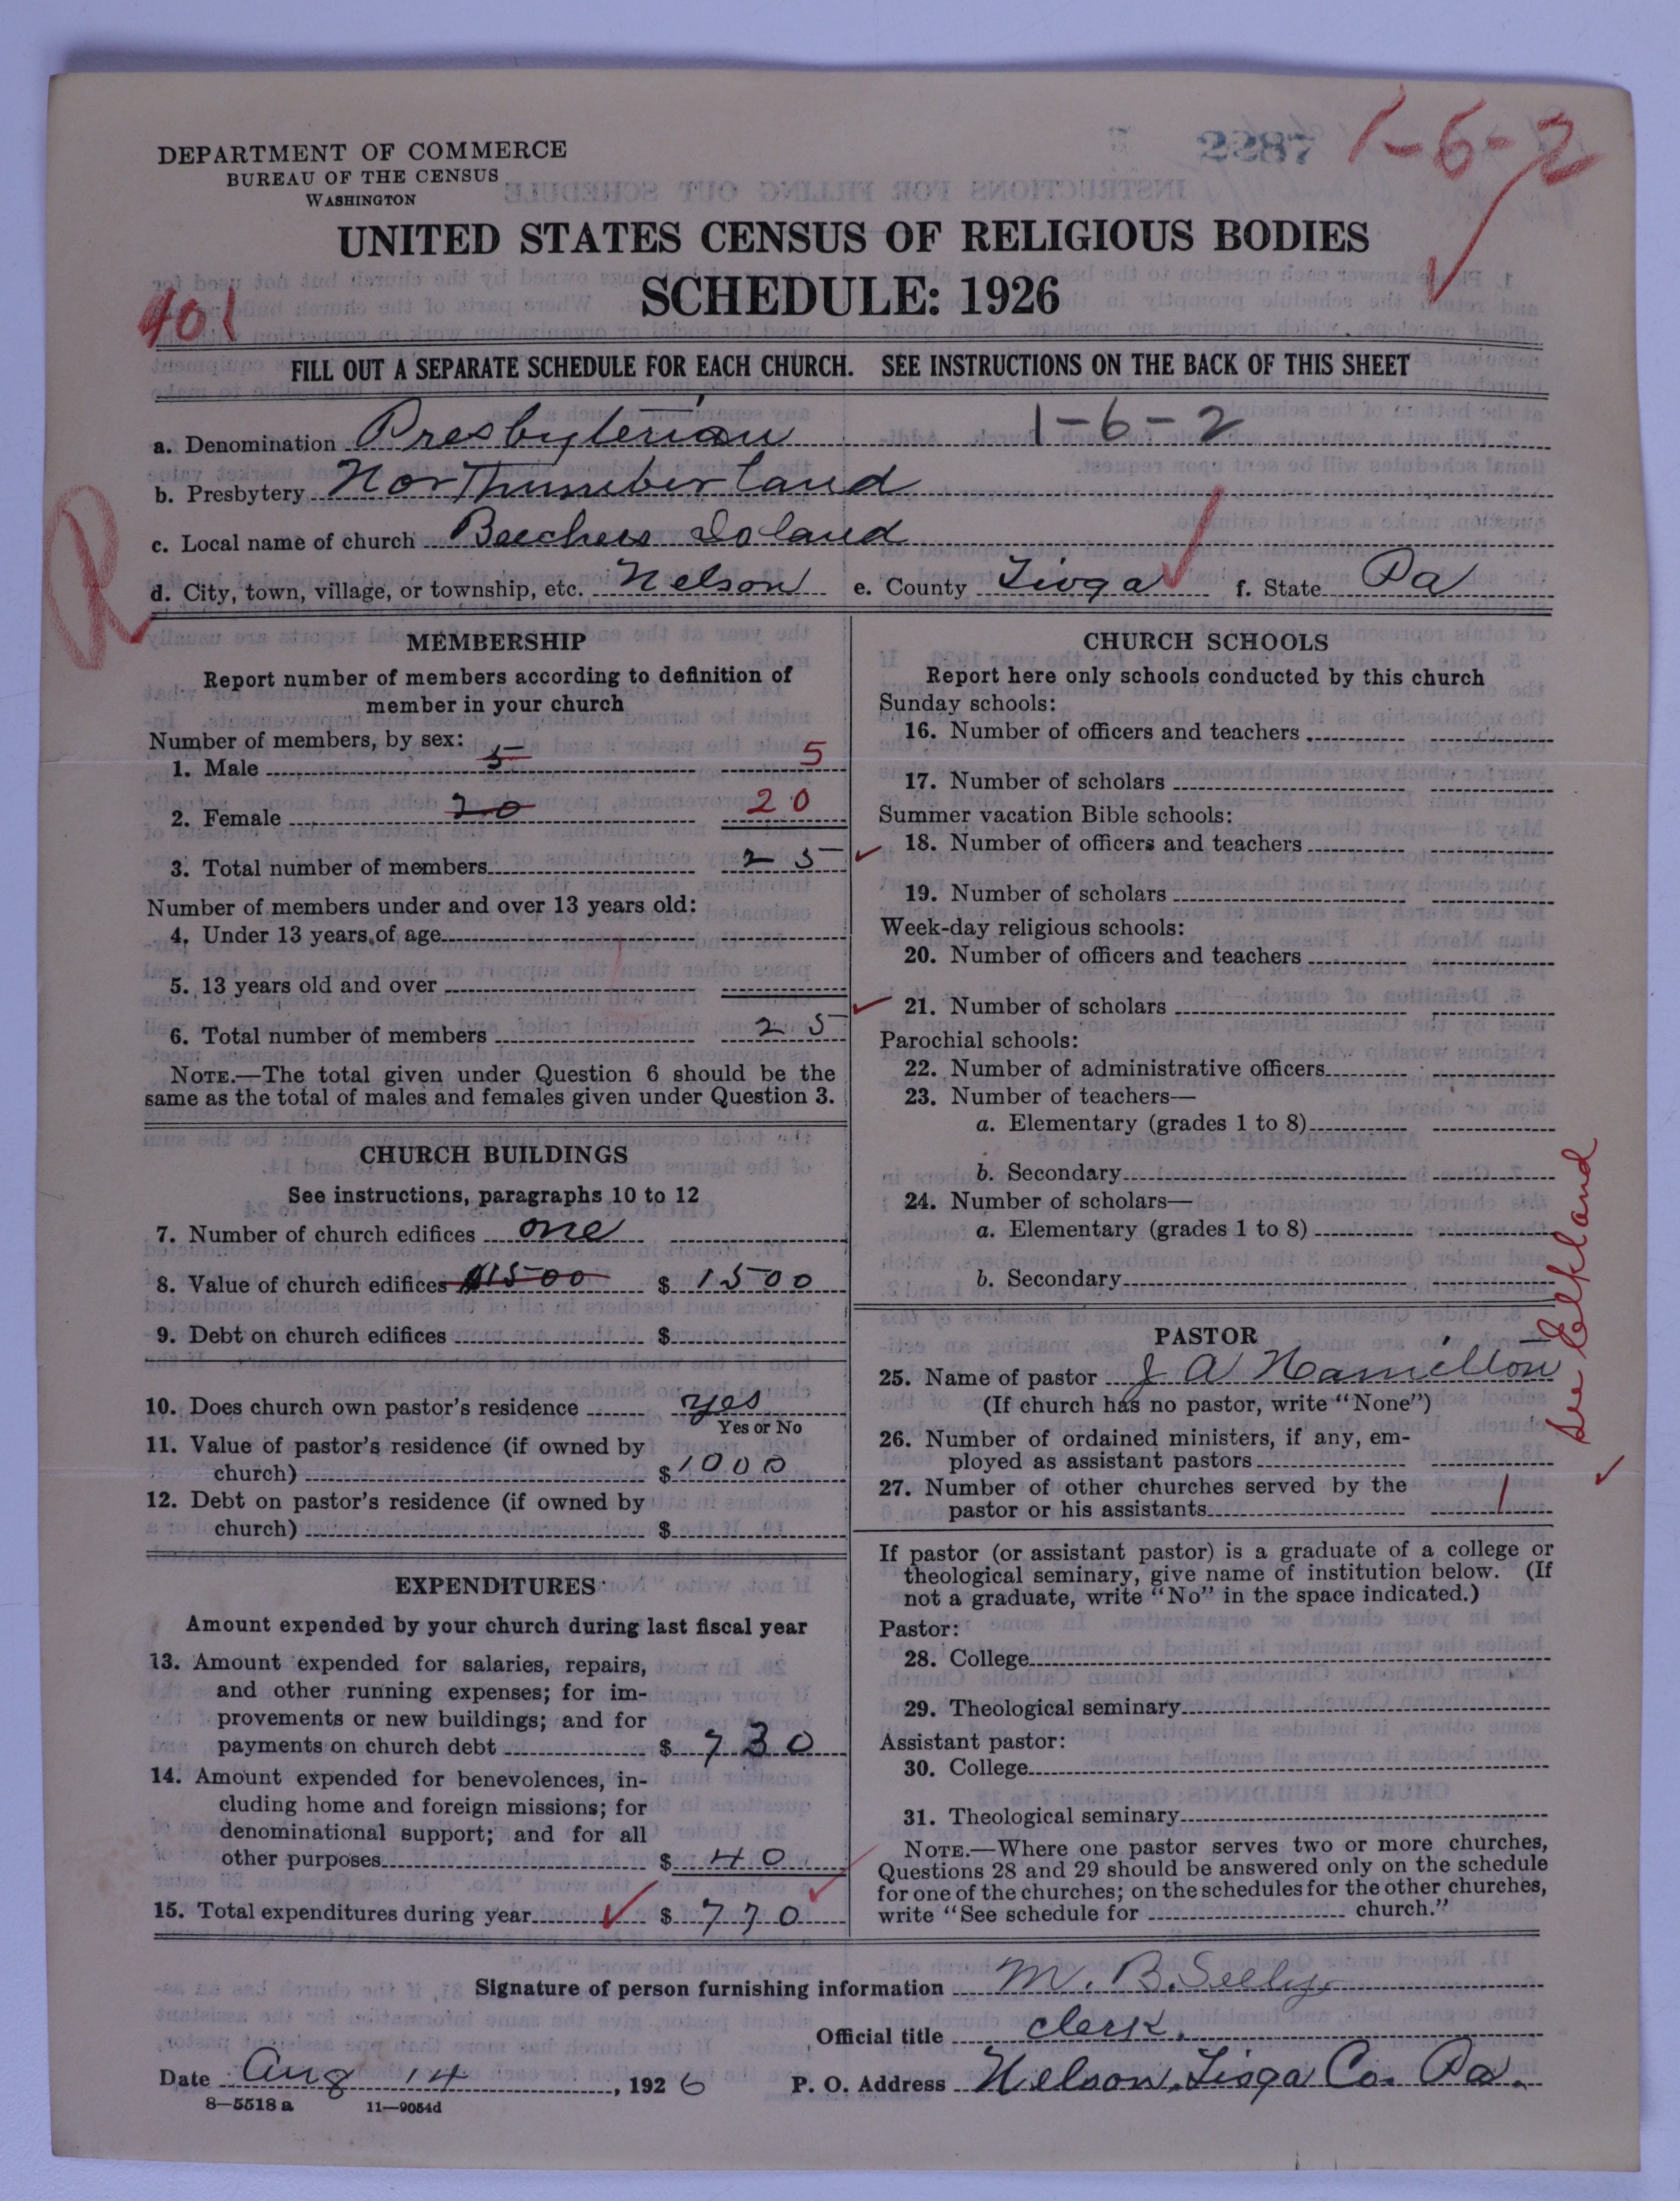 2287
1-6-2
DEPARTMENT OF COMMERCE
BUREAU OF THE CENSUS
WASHINGTON
UNITED STATES CENSUS OF RELIGIOUS BODIES
SCHEDULE: 1926
401
FILL OUT A SEPARATE SCHEDULE FOR EACH CHURCH. SEE INSTRUCTIONS ON THE BACK OF THIS SHEET
a. Denomination Presbyterian 1-6-2
b. Presbytery Northumberland
c. Local name of church Beechers Island
d. City, town, village, or township, etc. Nelson e. County Tioga f. State Pa
R
MEMBERSHIP
Report number of members according to definition of
member in your church
Number of members, by sex:
1. Male 5 5
2. Female 20 20
3. Total number of members 25
Number of members under and over 13 years old:
4. Under 13 years of age
5. 13 years old and over
6. Total number of members 25
NOTE.—The total given under Question 6 should be the
same as the total of males and females given under Question 3.
CHURCH BUILDINGS
See instructions, paragraphs 10 to 12
7. Number of church edifices one
8. Value of church edifices $1500 $ 1500
9. Debt on church edifices $
10. Does church own pastor's residence yes
Yes or No
11. Value of pastor's residence (if owned by
church) $ 1000
12. Debt on pastor's residence (if owned by
church) $
EXPENDITURES
Amount expended by your church during last fiscal year
13. Amount expended for salaries, repairs,
and other running expenses; for im-
provements or new buildings; and for
payments on church debt $ 730
14. Amount expended for benevolences, in-
cluding home and foreign missions; for
denominational support; and for all
other purposes $ 40
15. Total expenditures during year $ 770
CHURCH SCHOOLS
Report here only schools conducted by this church
Sunday schools:
16. Number of officers and teachers
17. Number of scholars
Summer vacation Bible schools:
18. Number of officers and teachers
19. Number of scholars
Week-day religious schools:
20. Number of officers and teachers
21. Number of scholars
Parochial schools:
22. Number of administrative officers
23. Number of teachers—
a. Elementary (grades 1 to 8)
b. Secondary
24. Number of scholars—
a. Elementary (grades 1 to 8)
b. Secondary
PASTOR
25. Name of pastor J A Hamilton
(If church has no pastor, write "None")
26. Number of ordained ministers, if any, em-
ployed as assistant pastors
27. Number of other churches served by the
pastor or his assistants 1
See Elkland
If pastor (or assistant pastor) is a graduate of a college or
theological seminary, give name of institution below. (If
not a graduate, write "No" in the space indicated.)
Pastor:
28. College
29. Theological seminary
Assistant pastor:
30. College
31. Theological seminary
NOTE.—Where one pastor serves two or more churches,
Questions 28 and 29 should be answered only on the schedule
for one of the churches; on the schedules for the other churches,
write "See schedule for church."
Signature of person furnishing information M. B. Seely
Official title clerk.
Date Aug 14, 1926 P. O. Address Nelson, Tioga Co. Pa.
8—5518 a 11—9054d